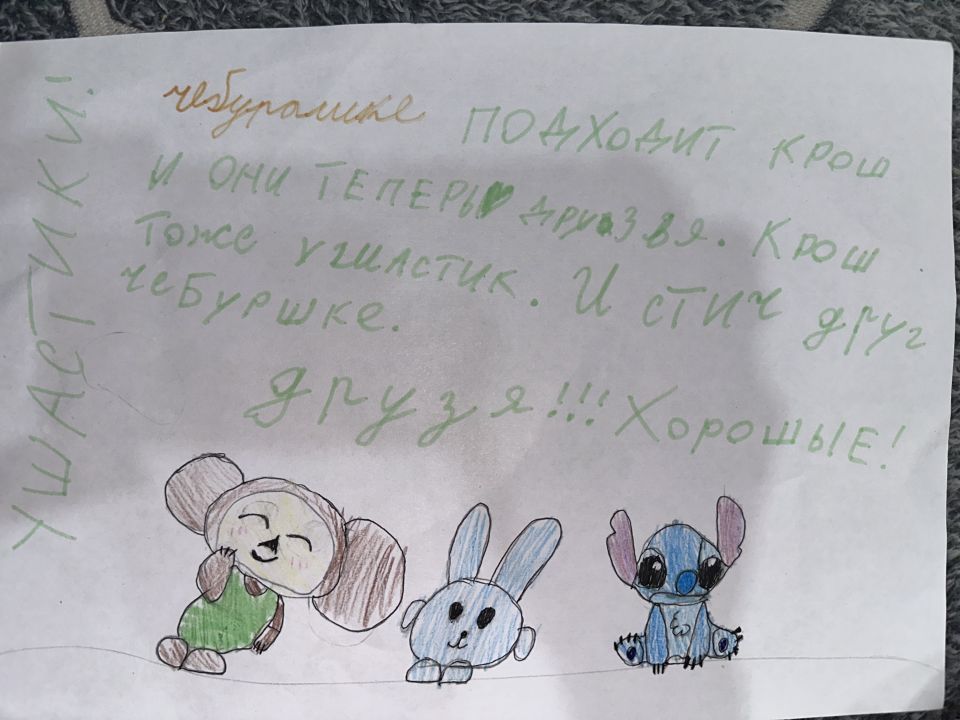 УШАСТИКИ!
чебурашке ПОДХОДИТ КРОШ
И ОНИ ТЕПЕРЬ друзвя. КРОШ
Тоже УШАСТИК. И СТИЧ друг
чеБуршке.
друзя!!! Хорошые!